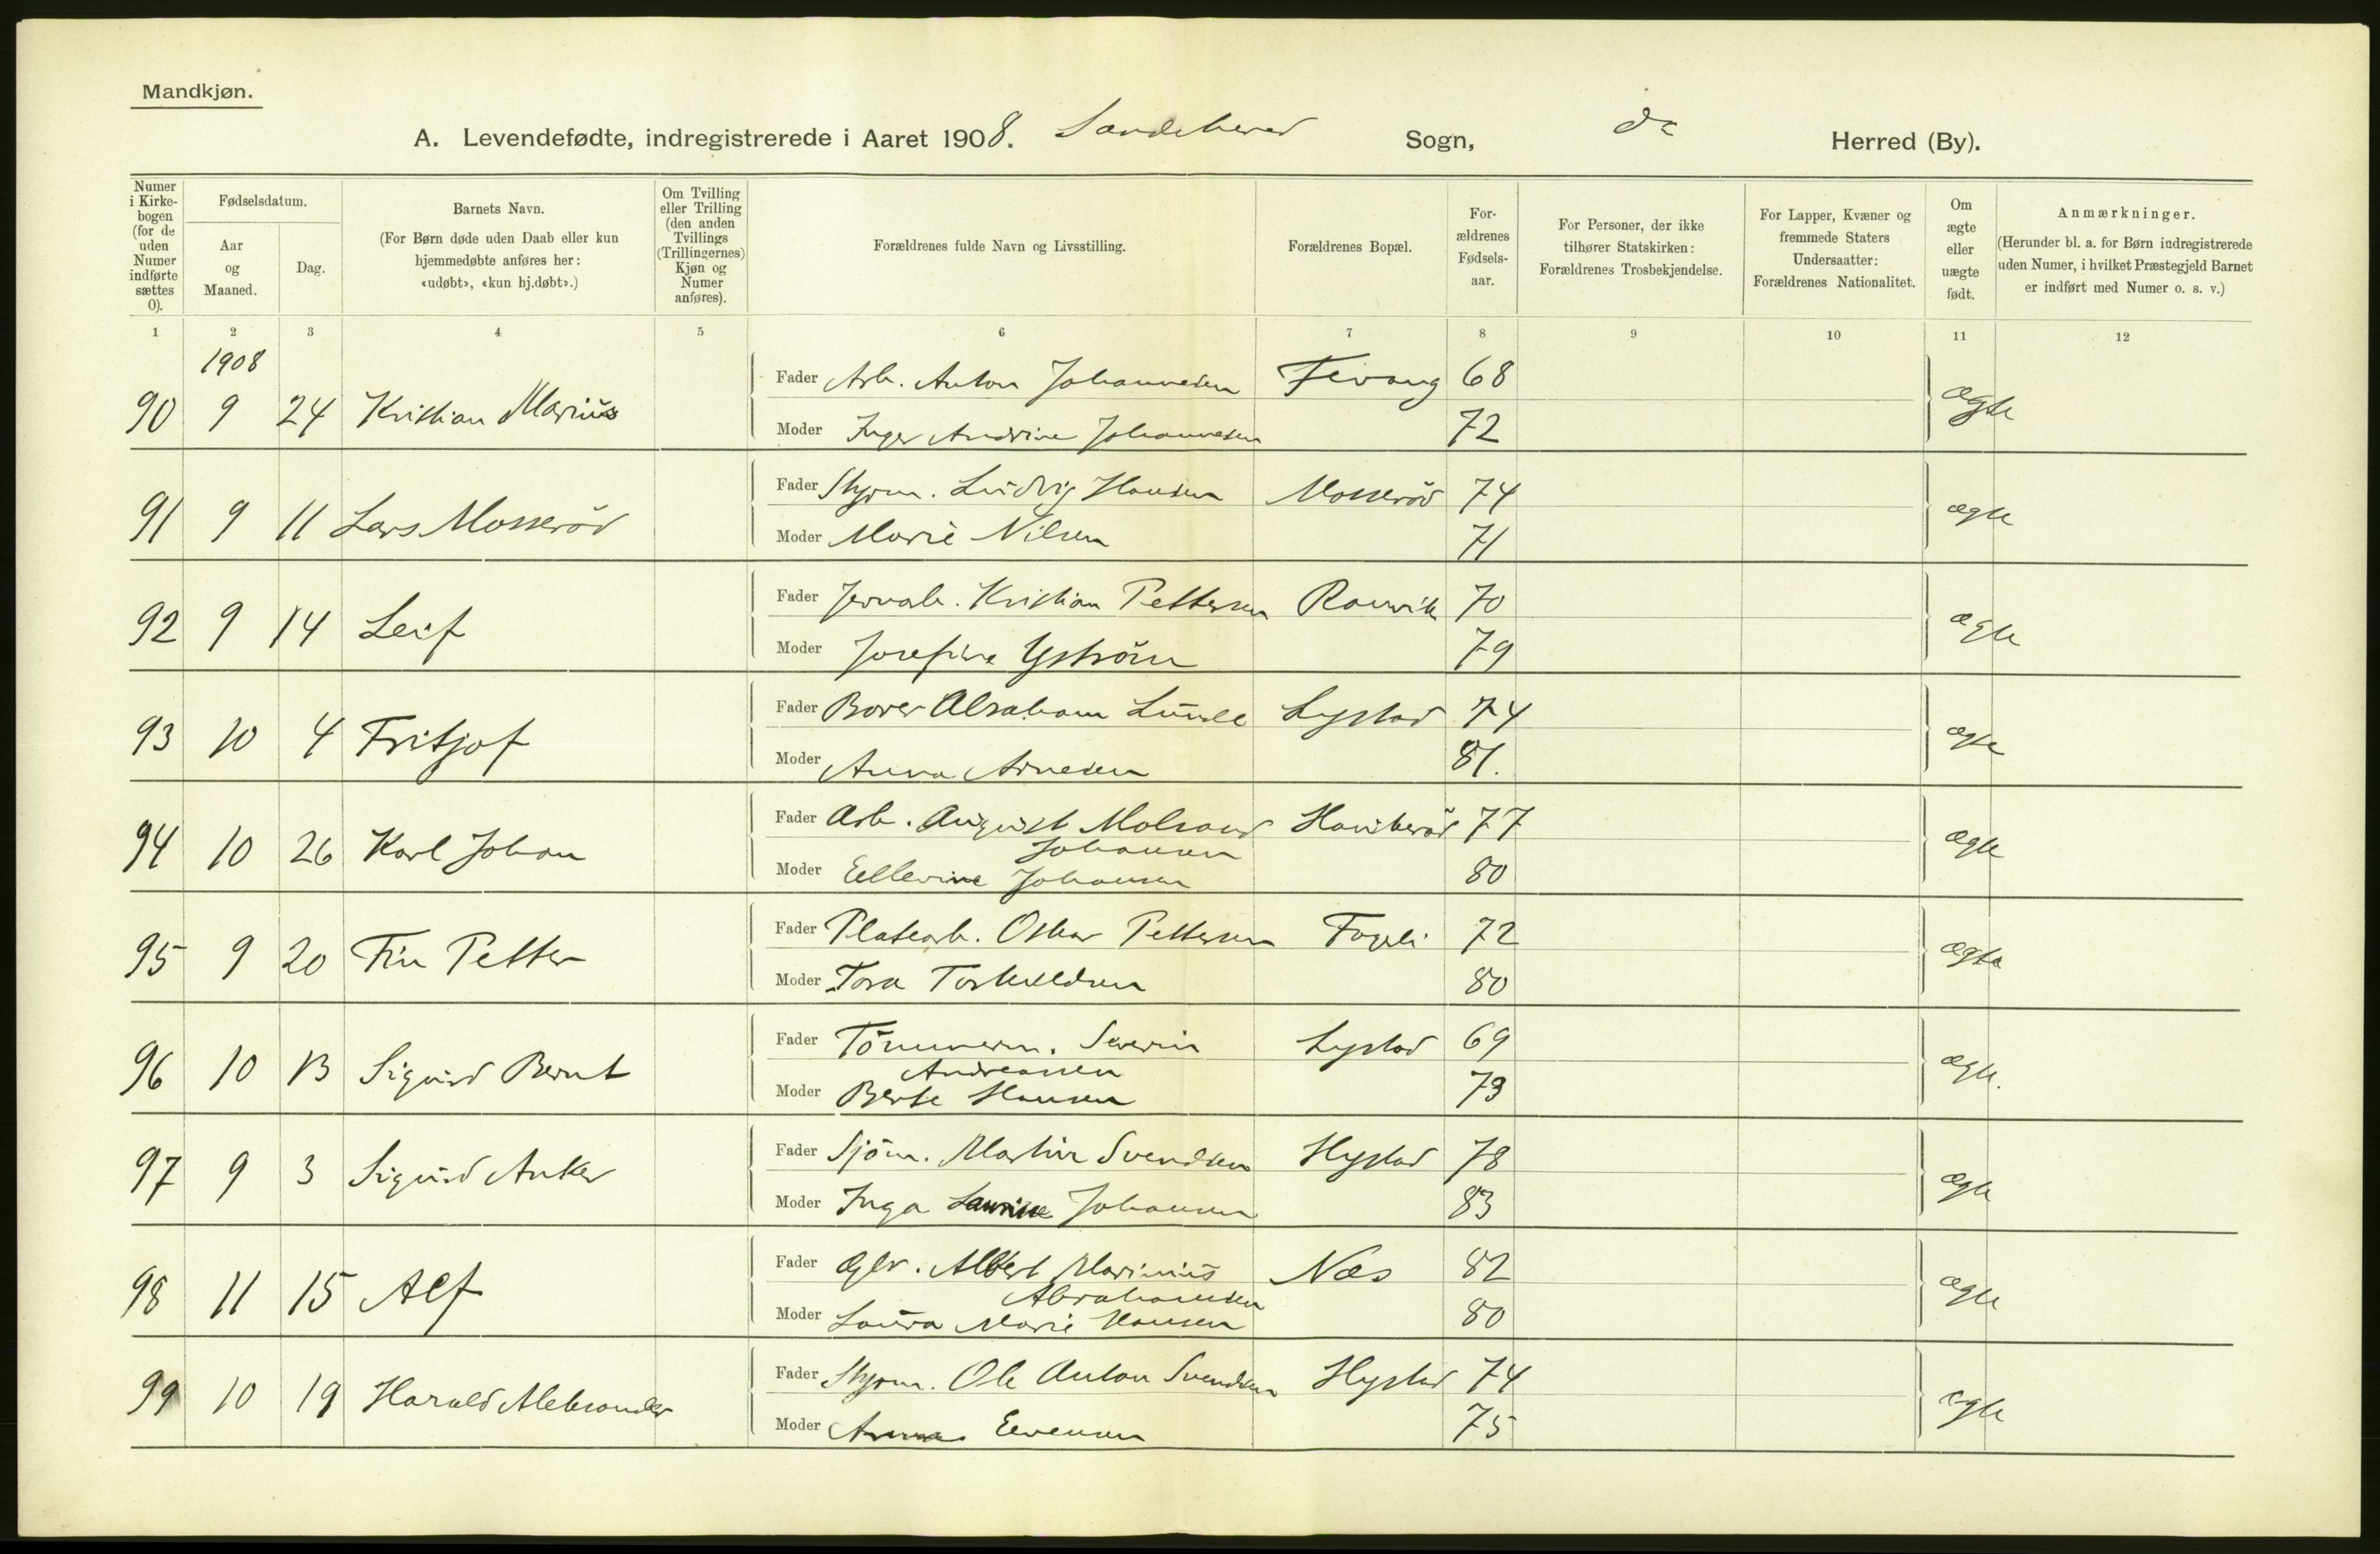 Mandkjøn.
A. Levendefødte, indregistrerede i Aaret 1908. Sandeherred Sogn, do Herred (By).
Numer i Kirkebogen (for de uden Numer indførte sættes 0).
Fødselsdatum.
Aar og Maaned.
Dag.
Barnets Navn.
(For Børn døde uden Daab eller kun hjemmedøbte anføres her: «udøbt», «kun hj.døbt».)
Om Tvilling eller Trilling (den anden Tvillings (Trillingernes) Kjøn og Numer anføres).
Forældrenes fulde Navn og Livsstilling.
Forældrenes Bopæl.
For-ældrenes Fødsels-aar.
For Personer, der ikke tilhører Statskirken: Forældrenes Trosbekjendelse.
For Lapper, Kvæner og fremmede Staters Undersaatter: Forældrenes Nationalitet.
Om ægte eller uægte født.
Anmærkninger.
(Herunder bl. a. for Børn indregistrerede uden Numer, i hvilket Præstegjeld Barnet er indført med Numer o. s. v.)
1 2 3 4 5 6 7 8 9 10 11 12
1908
90 9 24 Kristian Marius Fader Arb. Anton Johannesen Fevang 68 ægte
Moder Inger Andrine Johannesen 72
91 9 11 Lars Mosserød Fader Styrm. Ludvig Hansen Mosserød 74 ægte
Moder Marie Nilsen 71
92 9 14 Leif Fader Jernarb. Kristian Pettersen Ranvik 70 ægte
Moder Josefine Yström 79
93 10 4 Fritjof Fader Borer Abraham Lunde Lystad 74 ægte
Moder Anna Arnesen 81.
94 10 26 Karl Johan Fader Arb. August Molrand Haukerød 77 ægte
Johansen
Moder Ellevine Johansen 80
95 9 20 Fin Petter Fader Platearb. Oskar Pettersen 72 ægte
Moder Tora Torkildsen 80
96 10 13 Sigurd Bernt Fader Tömmerm. Severin Lystad 69 ægte.
Andreassen
Moder Berte Hansen 73
97 9 3 Sigurd Anker Fader Sjöm. Martin Svendsen Hystad 78 ægte
Moder Inga Laurine Johansen 83
98 11 15 Alf Fader Glv. Albert Marinius Næs 82 ægte
Abrahamsen
Moder Laura Marie Hansen 80
99 10 19 Harald Aleksander Fader Styrm. Ole Anton Svendsen Hystad 74 ægte
Moder Anna Evensen 75